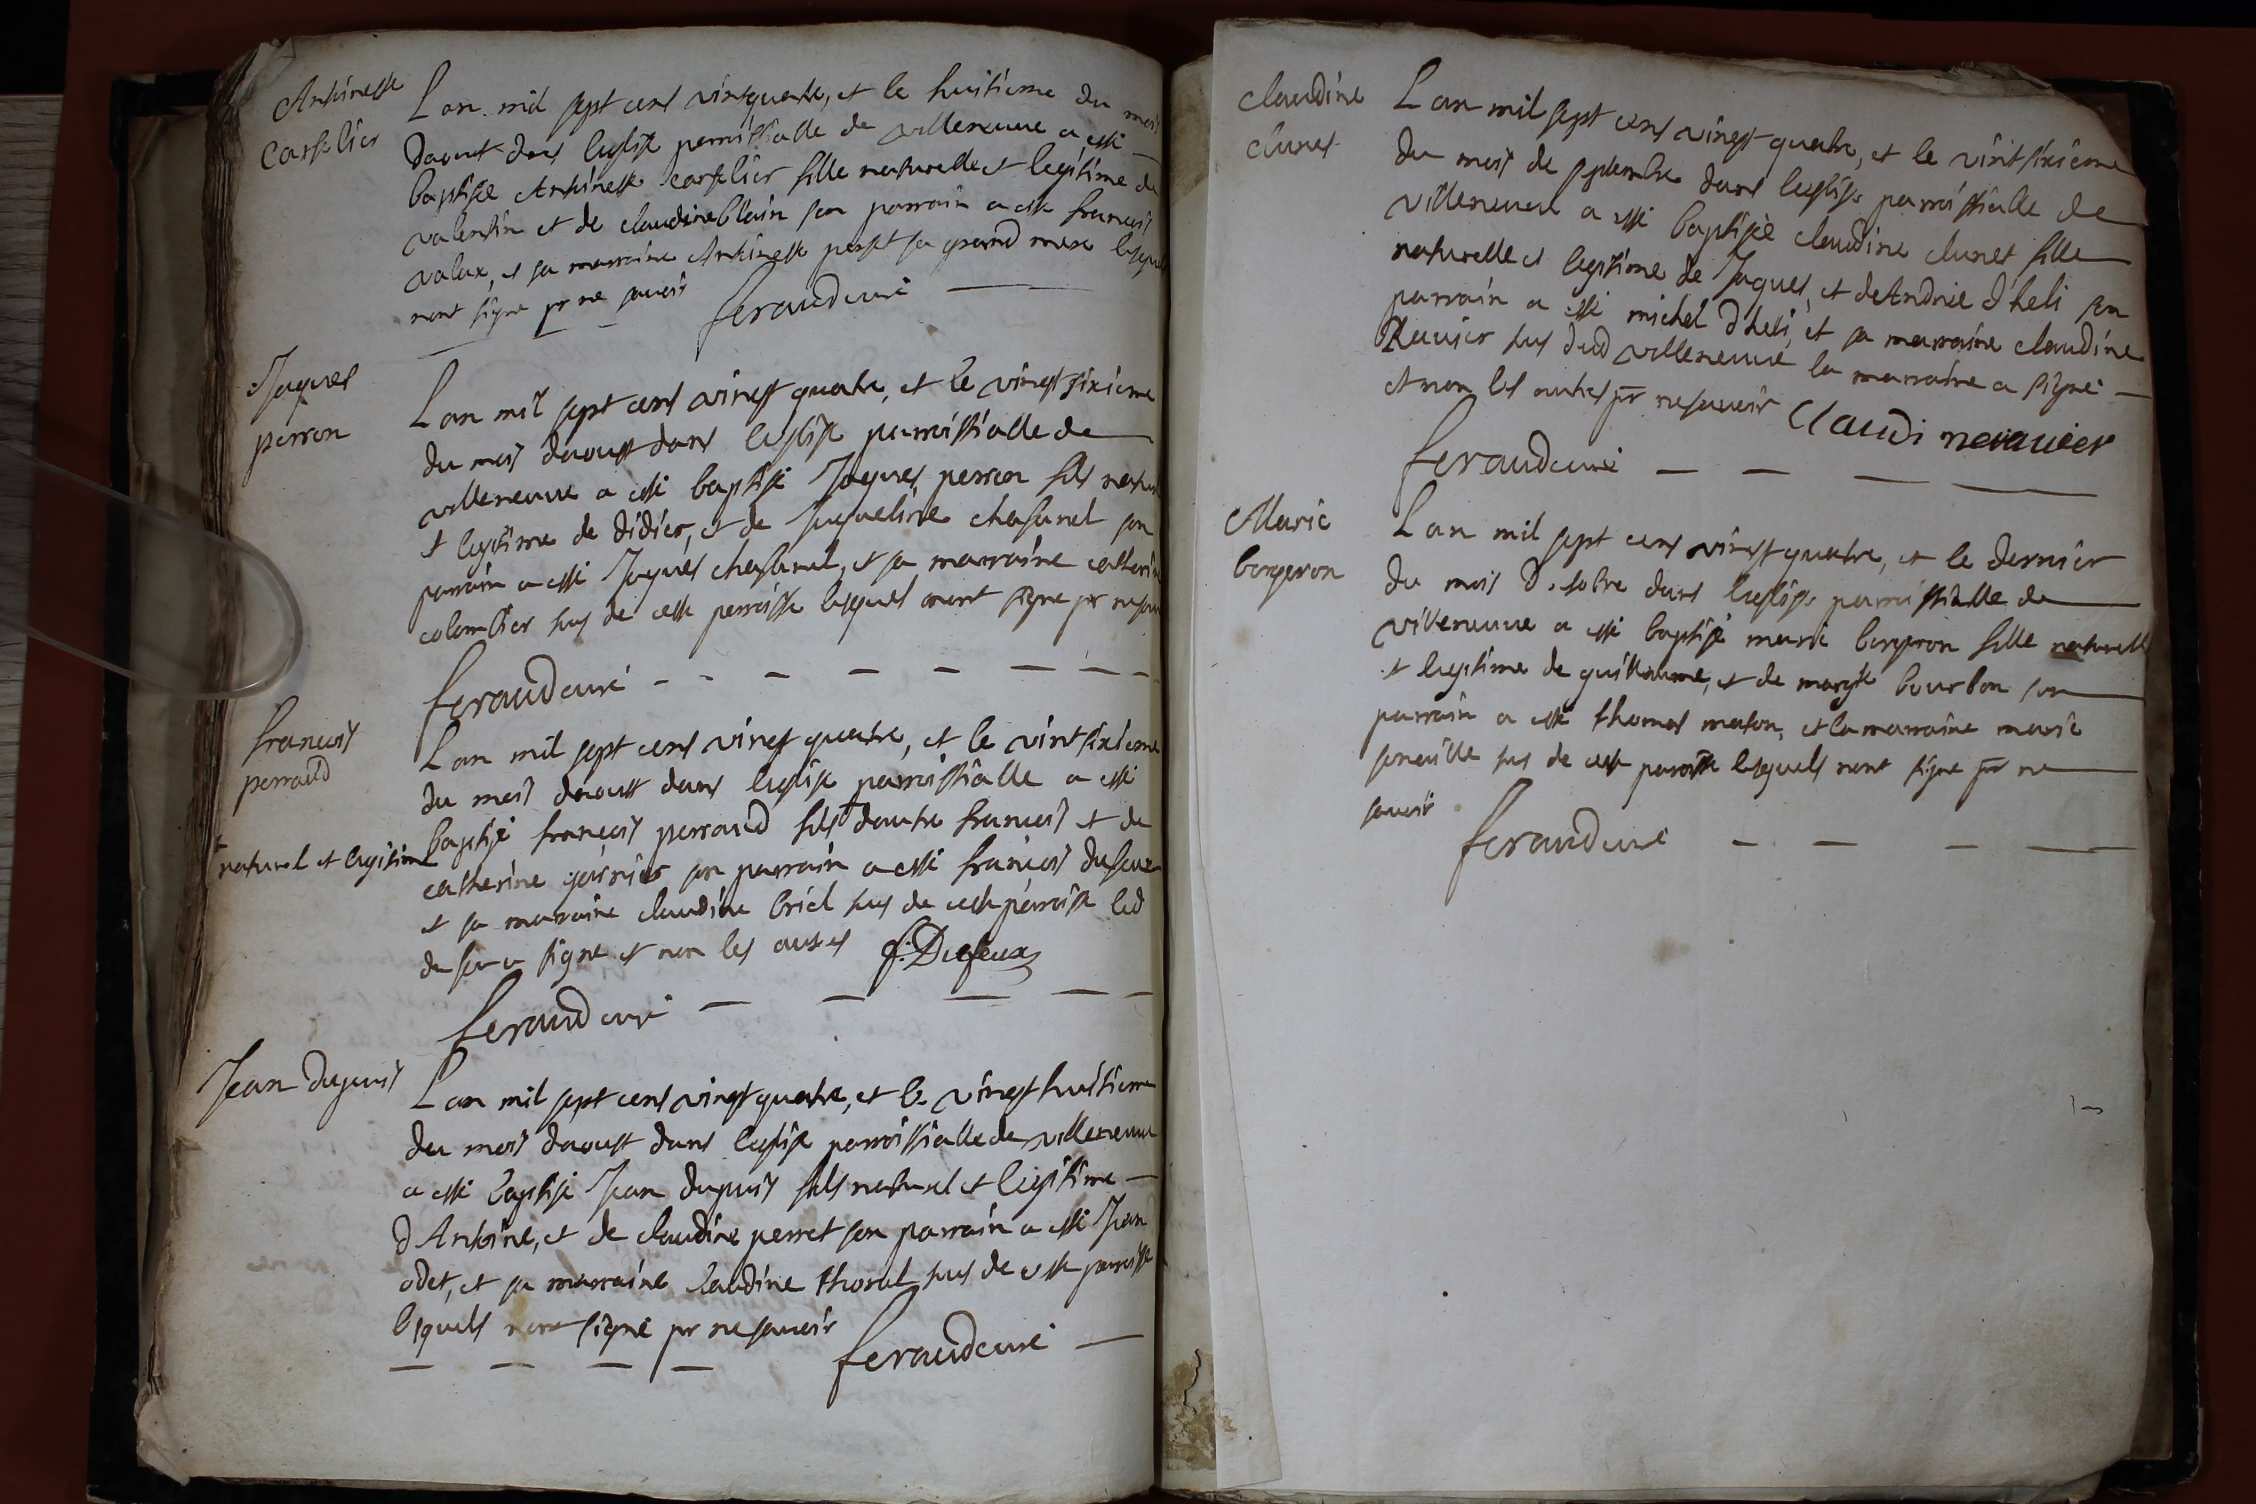 Antoinette
Carselier
Lan mil sept cens vintquatre, et le huitieme du mois
daoust dans leglise parroissialle de villeneuve a esté
baptisée Antoinette carselier fille naturelle et legitime de
valentin et de claudine blain son parrain a esté francois
valux, et sa marraine Antoinette perset sa grand mere lesquels
nont signé pr ne savoir
feraud curé
Jaques
perron
Lan mil sept cens vingt quatre, et le vingt sixieme
du mois daoust dans leglise parroissialle de
villeneuve a esté baptisé Jaques perron fils naturel
et legitime de didier, et de Jaqueline chasanel son
parrain a esté Jaques chasanel, et sa marraine catherine
colombier tus de cette parroisse lesquels nont signé pr ne savoir
feraud curé
francois
perraud
naturel et legitime
Lan mil sept cens vingt quatre, et le vint sixieme
du mois daoust dans leglise parroissialle a esté
baptisé françois perraud fils dautre francois et de
catherine garnier son parrain a esté francois duseux
et sa marraine claudine briel tus de cette parroisse led
du seux signe et non les autres f. Duseux
feraud curé
Jean dupuis
Lan mil sept cens vingt quatre, et le vingt huitieme
du mois daoust dans leglise parroissialle de villeneuve
a esté baptisé Jean dupuis fils naturel et legitime
d Antoine, et de claudine perret son parrain a esté Jean
odet, et sa marraine claudine thoral tus de cette parroisse
lesquels nont signé pr ne savoir
feraud curé
claudine
clunet
Lan mil sept cens vingt quatre, et le vint sixieme
du mois de septembre dans leglise parroissialle de
villeneuve a esté baptisée claudine clunet fille
naturelle et legitime de Jaques, et de Andrie d'heli son
parrain a esté michel d'heli, et sa marraine claudine
Ravier tus dud villeneuve la marraine a signé
et non les autres pr ne savoir Claudi neravier
feraud curé
Marie
bergeron
Lan mil sept cens vingt quatre, et le dernier
du mois d octobre dans leglise parroissialle de
villeneuve a esté baptisé marie bergeron fille naturelle
et legitime de guillaume, et de margte bourbon son
parrain a esté thomas maton, et la marraine marie
seneville tus de cette paroisse lesquels nont signé pr ne
savoir
feraud curé